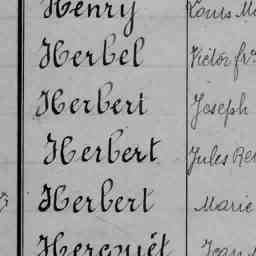 Henry Louis
Herbel Victor
Herbert Joseph
Herbert Jules
Herbert Marie
Hercouët Jean